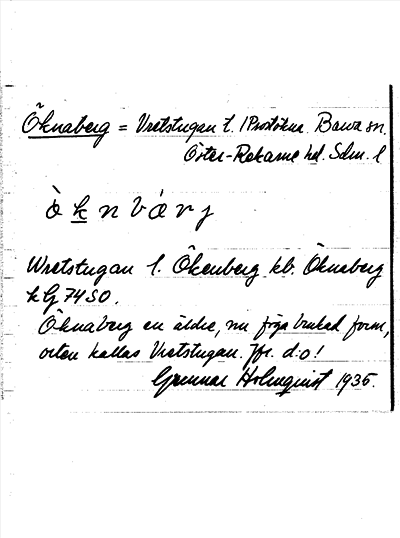 Öknaberg = Vretstugan t. /Prostökna. Bawa sn.
Öster-Rekarne hd. Sdm. l
ö̀ k n b ά r j
Wretstugan l. Ökenberg kb. Öknaberg
k Gj 74 SO.
Öknaberg en äldre, nu föga brukad form,
orten kallas Vretstugan. Jfr. d:o!
Gunnar Holmquist 1935.